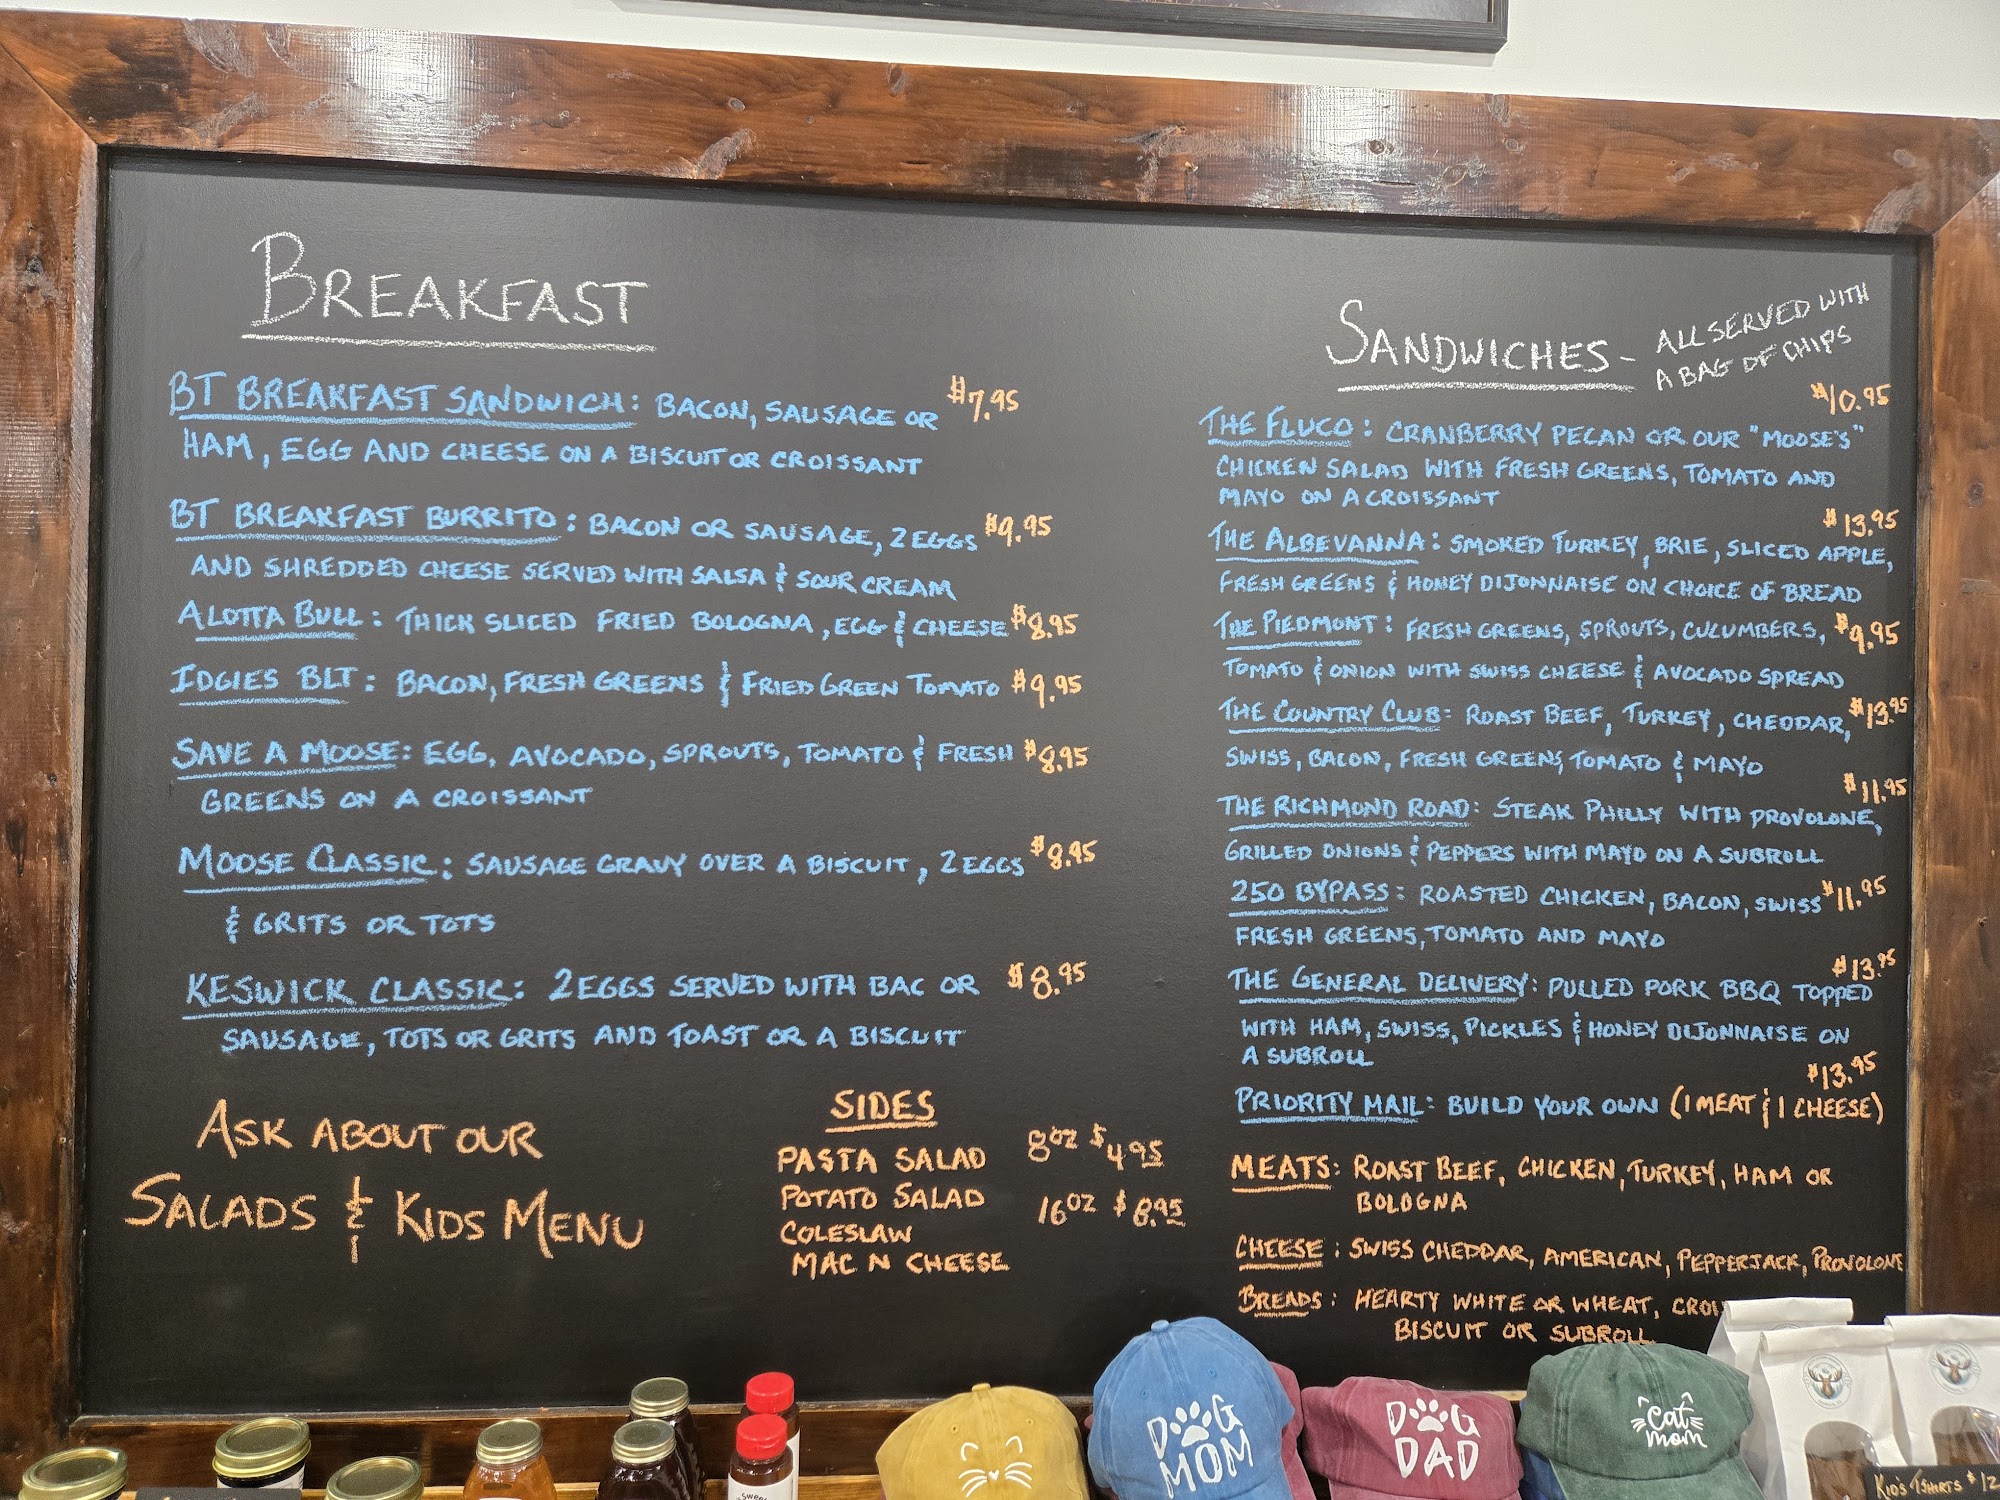 BREAKFAST
BT BREAKFAST SANDWICH: BACON, SAUSAGE OR $7.95
HAM, EGG AND CHEESE ON A BISCUIT OR CROISSANT
BT BREAKFAST BURRITO: BACON OR SAUSAGE, 2 EGGS $9.95
AND SHREDDED CHEESE SERVED WITH SALSA & SOUR CREAM
ALOTTA BULL: THICK SLICED FRIED BOLOGNA, EGG & CHEESE $8.95
IDGIES BLT: BACON, FRESH GREENS & FRIED GREEN TOMATO $9.95
SAVE A MOOSE: EGG, AVOCADO, SPROUTS, TOMATO & FRESH $8.95
GREENS ON A CROISSANT
MOOSE CLASSIC: SAUSAGE GRAVY OVER A BISCUIT, 2 EGGS $8.95
& GRITS OR TOTS
KESWICK CLASSIC: 2 EGGS SERVED WITH BAC OR $8.95
SAUSAGE, TOTS OR GRITS AND TOAST OR A BISCUIT
ASK ABOUT OUR
SALADS & KIDS MENU
SIDES
PASTA SALAD 8oz $4.95
POTATO SALAD 16oz $8.95
COLESLAW
MAC N CHEESE
SANDWICHES - ALL SERVED WITH
A BAG OF CHIPS
$10.95
THE FLUCO: CRANBERRY PECAN OR OUR "MOOSE'S"
CHICKEN SALAD WITH FRESH GREENS, TOMATO AND
MAYO ON A CROISSANT
$13.95
THE ALBEVANNA: SMOKED TURKEY, BRIE, SLICED APPLE,
FRESH GREENS & HONEY DIJONNAISE ON CHOICE OF BREAD
THE PIEDMONT: FRESH GREENS, SPROUTS, CUCUMBERS, $9.95
TOMATO & ONION WITH SWISS CHEESE & AVOCADO SPREAD
THE COUNTRY CLUB: ROAST BEEF, TURKEY, CHEDDAR, $13.95
SWISS, BACON, FRESH GREENS, TOMATO & MAYO
$11.95
THE RICHMOND ROAD: STEAK PHILLY WITH PROVOLONE,
GRILLED ONIONS & PEPPERS WITH MAYO ON A SUBROLL
250 BYPASS: ROASTED CHICKEN, BACON, SWISS $11.95
FRESH GREENS, TOMATO AND MAYO
$13.95
THE GENERAL DELIVERY: PULLED PORK BBQ TOPPED
WITH HAM, SWISS, PICKLES & HONEY DIJONNAISE ON
A SUBROLL
$13.95
PRIORITY MAIL: BUILD YOUR OWN (1 MEAT & 1 CHEESE)
MEATS: ROAST BEEF, CHICKEN, TURKEY, HAM OR
BOLOGNA
CHEESE: SWISS CHEDDAR, AMERICAN, PEPPERJACK, PROVOLONE
BREADS: HEARTY WHITE OR WHEAT,
BISCUIT OR SUBROLL
DOG
MOM
DOG
DAD
Cat
mom
KID'S TSHIRTS $12